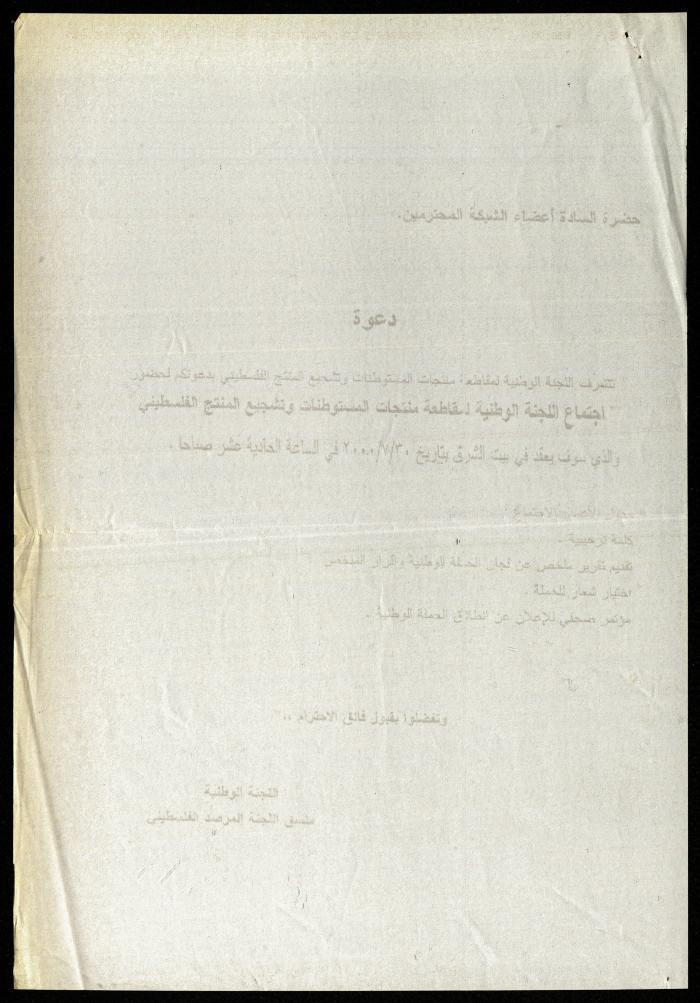 حضرة السادة أعضاء الشبكة المحترمين.
دعوة
تتشرف اللجنة الوطنية لمقاطعة منتجات المستوطنات وتشجيع المنتج الفلسطيني بدعوتكم لحضور
اجتماع اللجنة الوطنية لمقاطعة منتجات المستوطنات وتشجيع المنتج الفلسطيني
والذي سوف يعقد في بيت الشرق بتاريخ ٢٠٠٠/٧/٣٠ في الساعة الحادية عشر صباحا .
جدول الأعمال الاجتماع
كلمة ترحيبية .
تقديم تقرير ملخص عن لجان الحملة الوطنية وإقرار الملخص
اختيار شعار للحملة .
مؤتمر صحفي للإعلان عن انطلاق الحملة الوطنية .
وتفضلوا بقبول فائق الاحترام ،،
اللجنة الوطنية
منسق اللجنة المرصد الفلسطيني